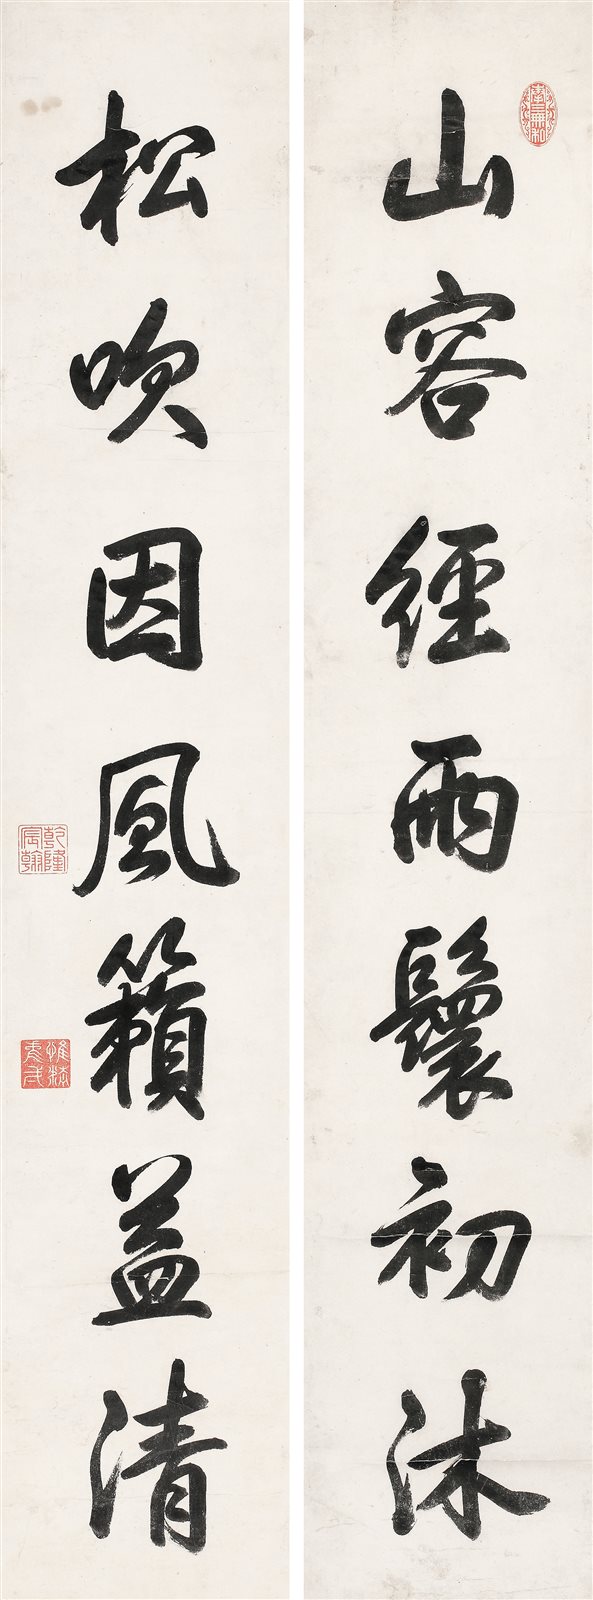 山容經雨鬟初沐
松吹因風籟益清
乾隆宸翰
惟精惟一